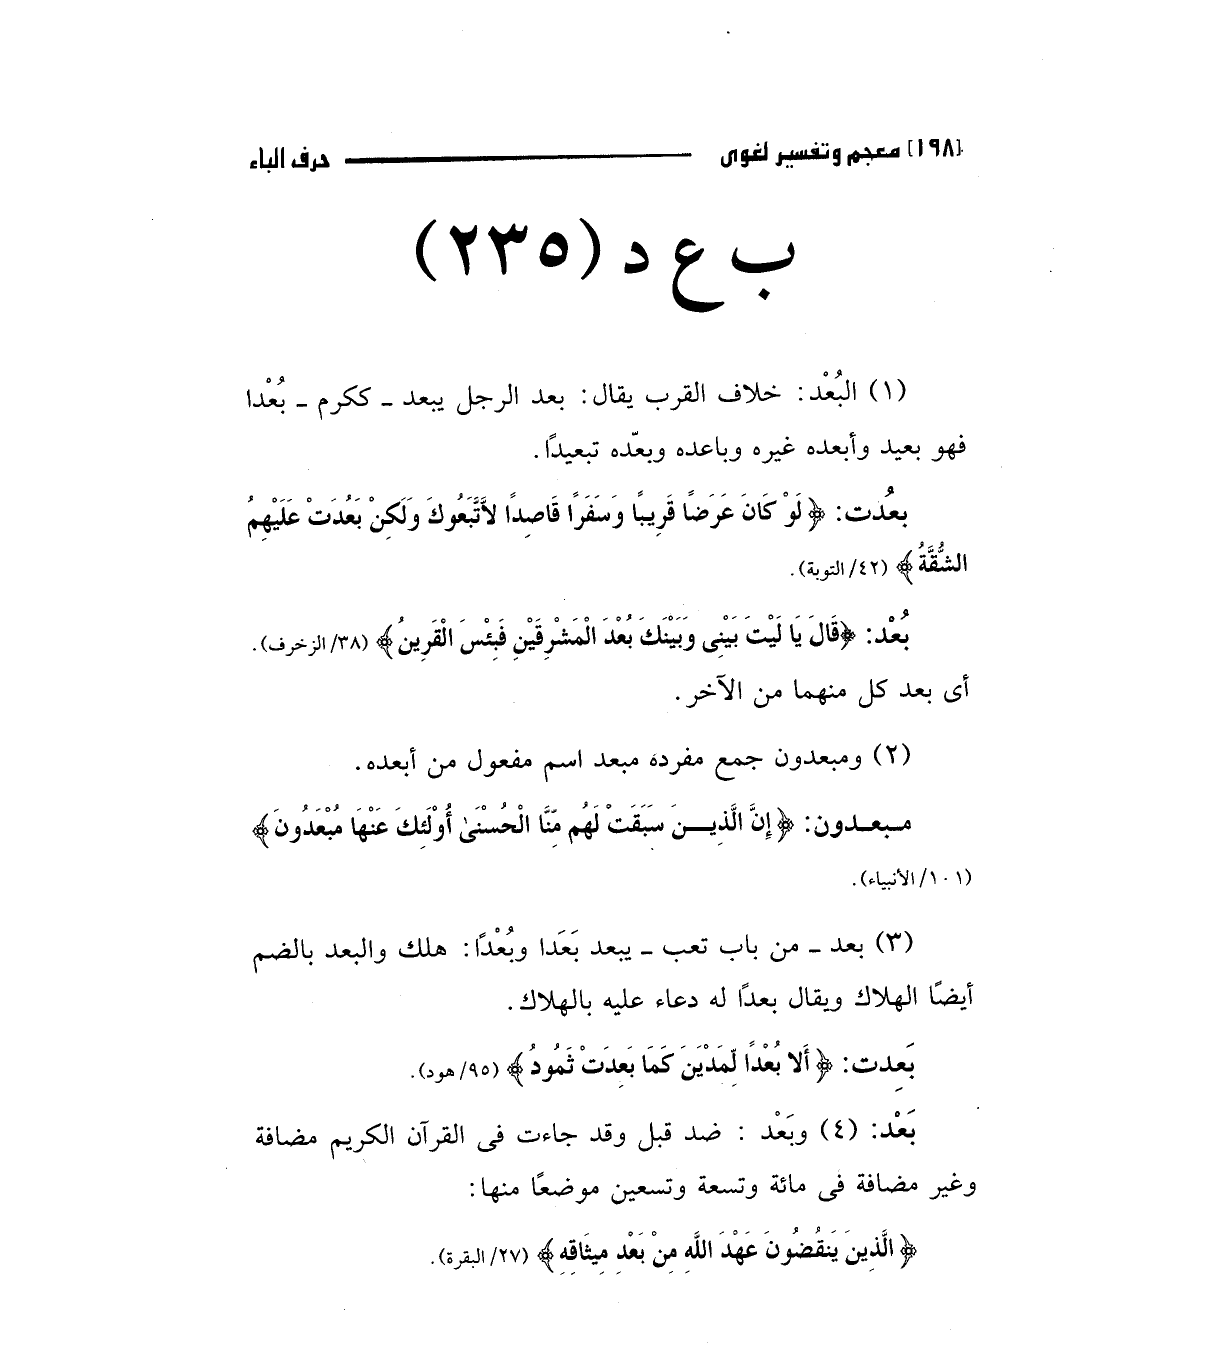 [١٩٨] معجم وتفسير لغوى حرف الباء
ب ع د (٢٣٥)
(١) البُعْد: خلاف القرب يقال: بعد الرجل يبعد ـ ككرم ـ بُعْدا
فهو بعيد وأبعده غيره وباعده وبعّده تبعيدًا.
بعُدت: ﴿لَوْ كَانَ عَرَضًا قَرِيبًا وَسَفَرًا قَاصِدًا لاَّتَّبَعُوكَ وَلَكِنْ بَعُدَتْ عَلَيْهِمُ
الشُّقَّةُ﴾ (٤٢/ التوبة).
بُعْد: ﴿قَالَ يَا لَيْتَ بَيْنِى وَبَيْنَكَ بُعْدَ الْمَشْرِقَيْنِ فَبِئْسَ الْقَرِينُ﴾ (٣٨/ الزخرف).
أى بعد كل منهما من الآخر.
(٢) ومبعدون جمع مفرده مبعد اسم مفعول من أبعده.
مـبعـدون: ﴿إِنَّ الَّذِيـــنَ سَبَقَتْ لَهُم مِّنَّا الْحُسْنَىٰ أُوْلَئِكَ عَنْهَا مُبْعَدُونَ﴾
(١٠١/ الأنبياء).
(٣) بعد ـ من باب تعب ـ يبعد بَعَدا وبُعْدًا: هلك والبعد بالضم
أيضًا الهلاك ويقال بعدًا له دعاء عليه بالهلاك.
بَعِدت: ﴿أَلا بُعْدًا لِّمَدْيَنَ كَمَا بَعِدَتْ ثَمُودُ﴾ (٩٥/ هود).
بَعْد: (٤) وبَعْد : ضد قبل وقد جاءت فى القرآن الكريم مضافة
وغير مضافة فى مائة وتسعة وتسعين موضعًا منها:
﴿الَّذِينَ يَنقُضُونَ عَهْدَ اللَّهِ مِنْ بَعْدِ مِيثَاقِهِ﴾ (٢٧/ البقرة).